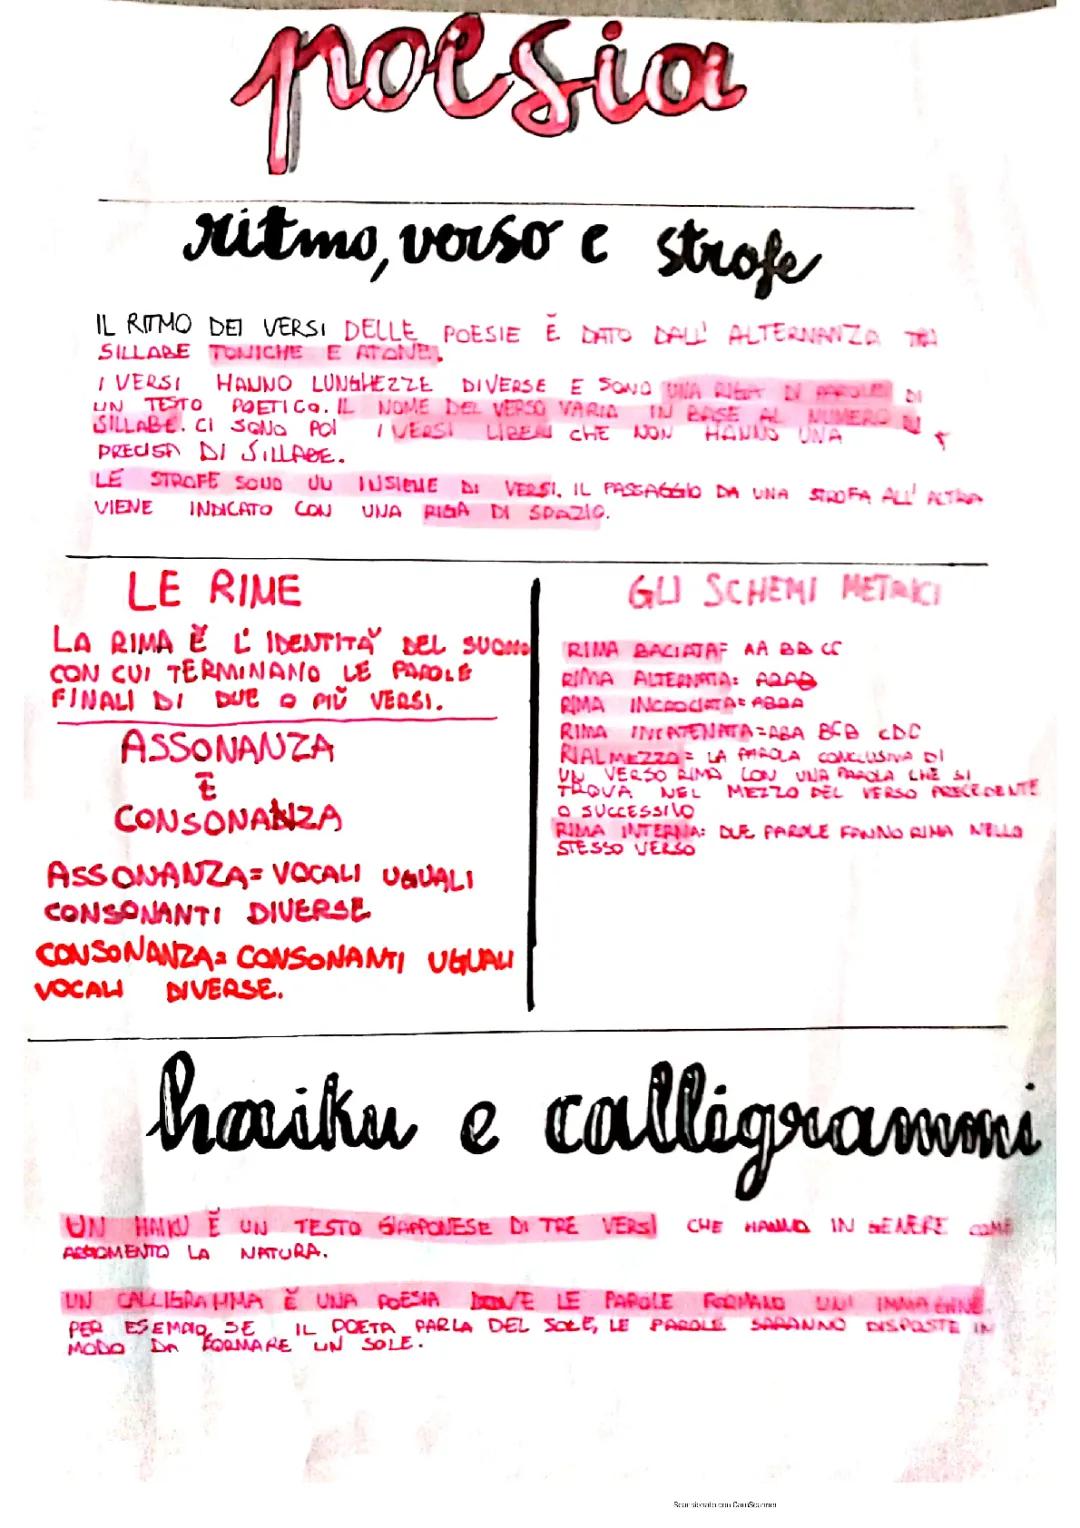 poesia
ritmo, verso e strofe
IL RITMO DEI VERSI DELLE POESIE È DATO DALL' ALTERNANZA TRA
SILLABE TONICHE E ATONE.
I VERSI HANNO LUNGHEZZE DIVERSE E SONO UNA RIGA DI PAROLE DI
UN TESTO POETICO. IL NOME DEL VERSO VARIA IN BASE AL NUMERO DI
SILLABE. CI SONO POI I VERSI LIBERI CHE NON HANNO UNA
PRECISA DI SILLABE.
LE STROFE SONO UN INSIEME DI VERSI. IL PASSAGGIO DA UNA STROFA ALL' ALTRA
VIENE INDICATO CON UNA RIGA DI SPAZIO.
LE RIME
LA RIMA È L' IDENTITÀ DEL SUONO
CON CUI TERMINANO LE PAROLE
FINALI DI DUE O PIÙ VERSI.
ASSONANZA
E
CONSONANZA
ASSONANZA= VOCALI UGUALI
CONSONANTI DIVERSE
CONSONANZA= CONSONANTI UGUALI
VOCALI DIVERSE.
GLI SCHEMI METRICI
RIMA BACIATA= AA BB CC
RIMA ALTERNATA: ABAB
RIMA INCROCIATA= ABBA
RIMA INCATENATA=ABA BCB CDC
RIALMEZZO= LA PAROLA CONCLUSIVA DI
UN VERSO RIMA CON UNA PAROLA CHE SI
TROVA NEL MEZZO DEL VERSO PRECEDENTE
O SUCCESSIVO
RIMA INTERNA: DUE PAROLE FANNO RIMA NELLO
STESSO VERSO
haiku e calligrammi
UN HAIKU È UN TESTO GIAPPONESE DI TRE VERSI CHE HANNO IN GENERE COME
ARGOMENTO LA NATURA.
UN CALLIGRAMMA È UNA POESIA DOVE LE PAROLE FORMANO UN' IMMAGINE.
PER ESEMPIO, SE IL POETA PARLA DEL SOLE, LE PAROLE SARANNO DISPOSTE IN
MODO DA FORMARE UN SOLE.
Scansionato con CamScanner